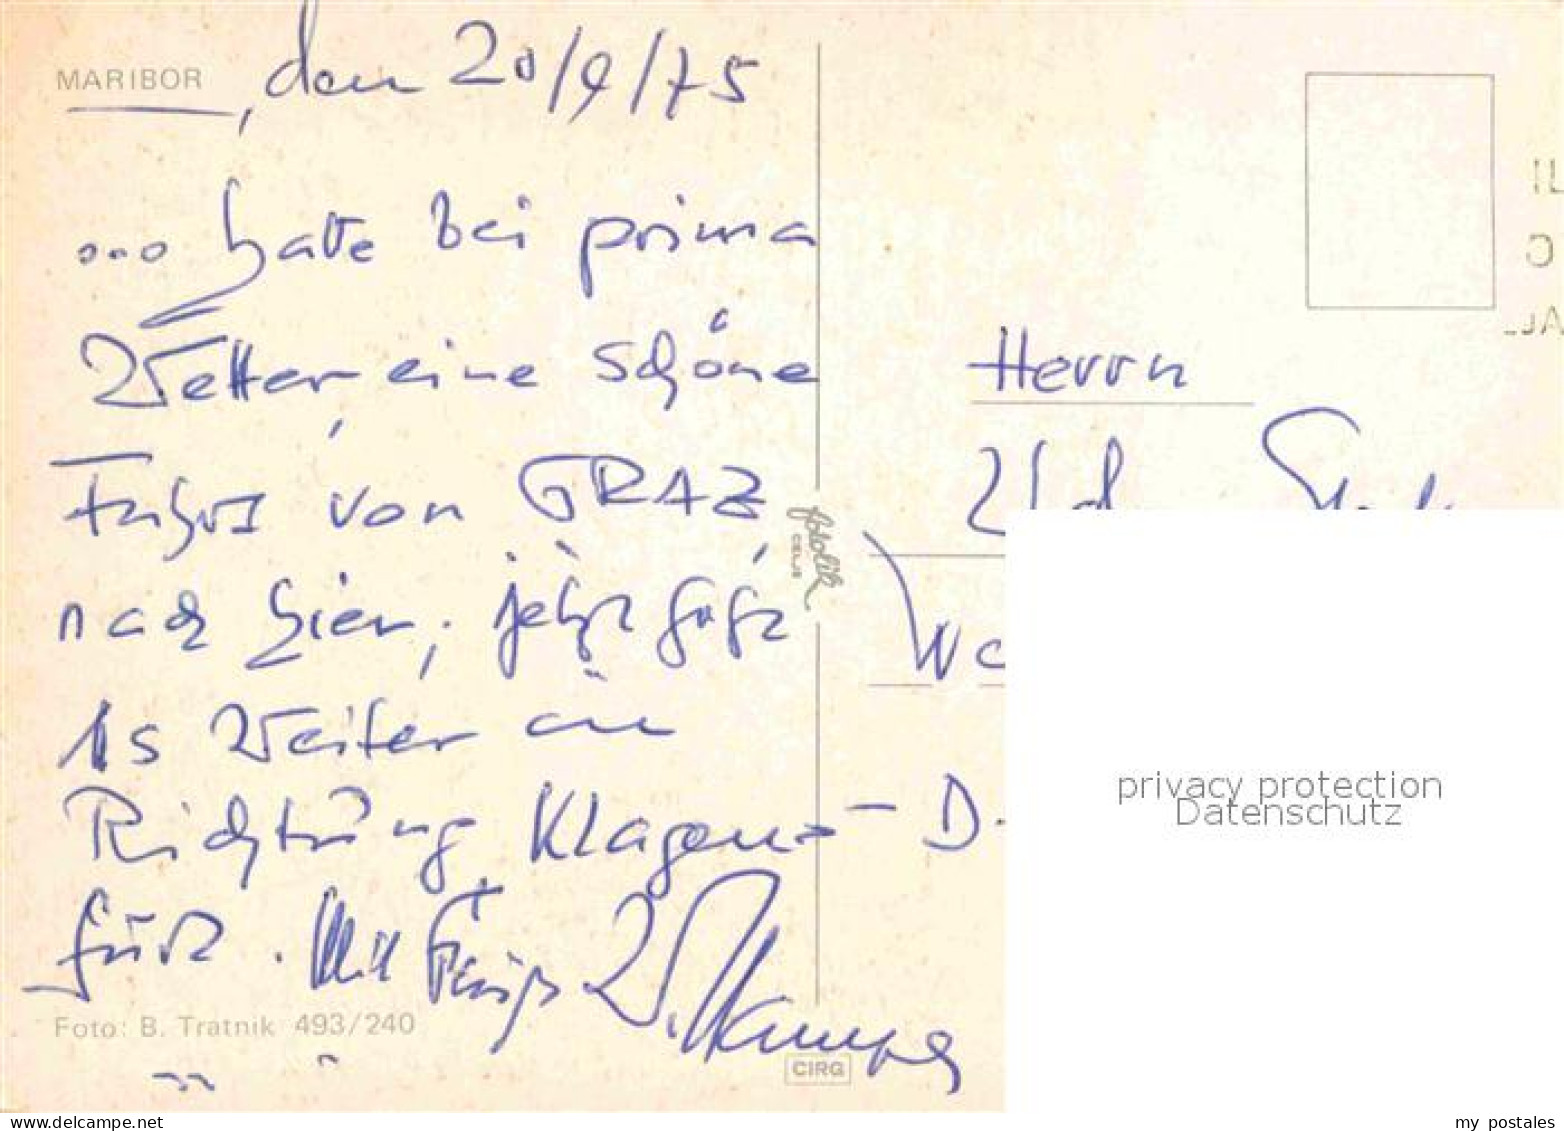 MARIBOR, den 20/9/75
... hatte bei prima
Wetter, eine schöne
Fahrt von GRAZ
nach hier, jetzt geht
1s weiter in
Richtung Klagen=
furt. Mit Gruß
Foto: B. Tratnik 493/240
fotolik
CELJE
CIRG
Herrn
- D.
privacy protection
Datenschutz
www.delcampe.net
my_postales